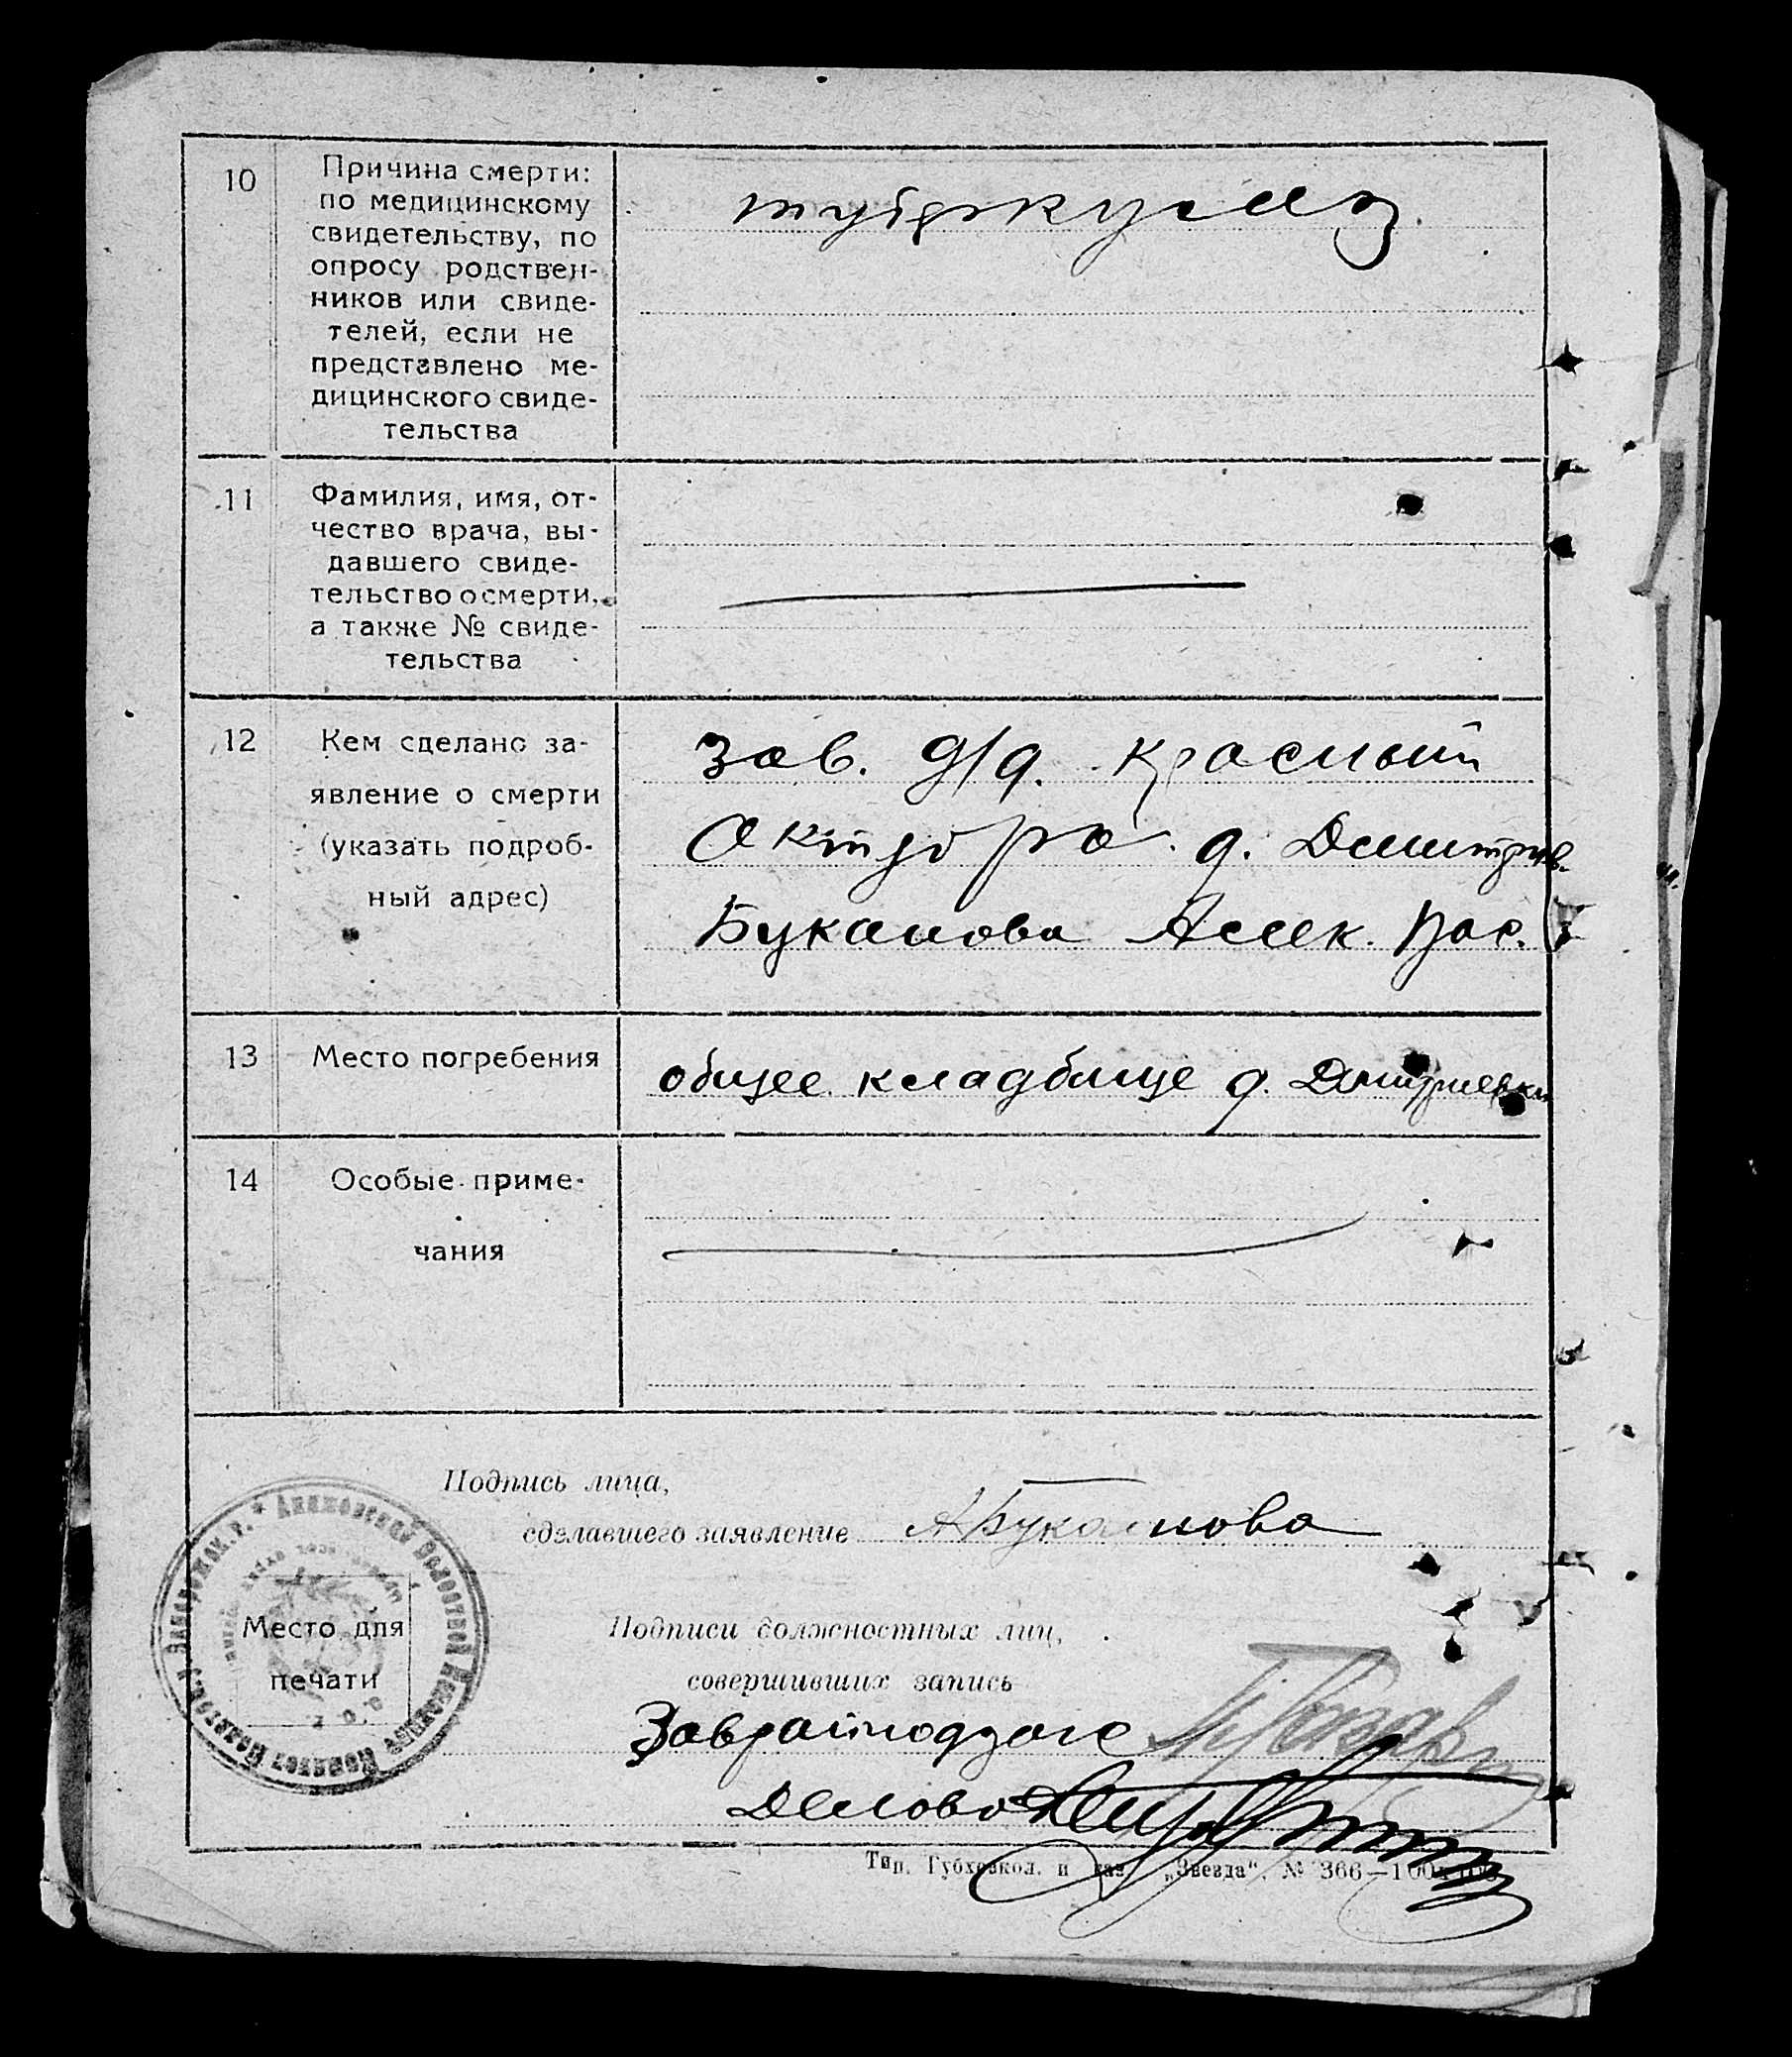 10
Причина смерти:
по медицинскому
свидетельству, по
опросу родствен-
ников или свиде-
телей, если не
представлено ме-
дицинского свиде-
тельства
туберкулез.
11
Фамилия, имя, от-
чество врача, вы-
давшего свиде-
тельство о смерти,
а также № свиде-
тельства
12
Кем сделано за-
явление о смерти
(указать подроб-
ный адрес)
зав. д/д. Красный
Октября д. Дмитриев.
Буканова Алек.
13
Место погребения
общее кладбище д. Дмитриевки
14
Особые приме-
чания
Подпись лица,
сделавшего заявление
АБуканова
Место для
печати
Подписи должностных лиц,
совершивших запись
Заврайподзагс
Делов
Тип. Губ и газ. „Звезда“. № 366—100